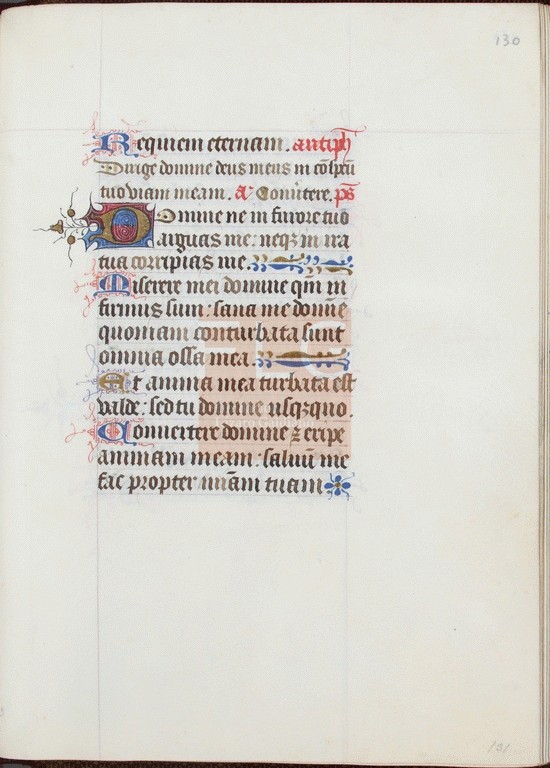 130
Requiem eternam. antiph̄
Dirige domine deus meus in cōspcū
tuo viam meam. a᷒ Conūtere. ps̄
Domine ne in furore tuo
arguas me: neqꝫ in ira
tua corripias me.
Miserere mei domine qm̄ in
firmus sum: sana me domīe
quoniam conturbata sunt
omnia ossa mea.
Et anima mea turbata est
valde: sed tu domine usqꝫquo.
Conuertere domine ⁊ eripe
animam meam: saluū me
fac propter miām tuam
131